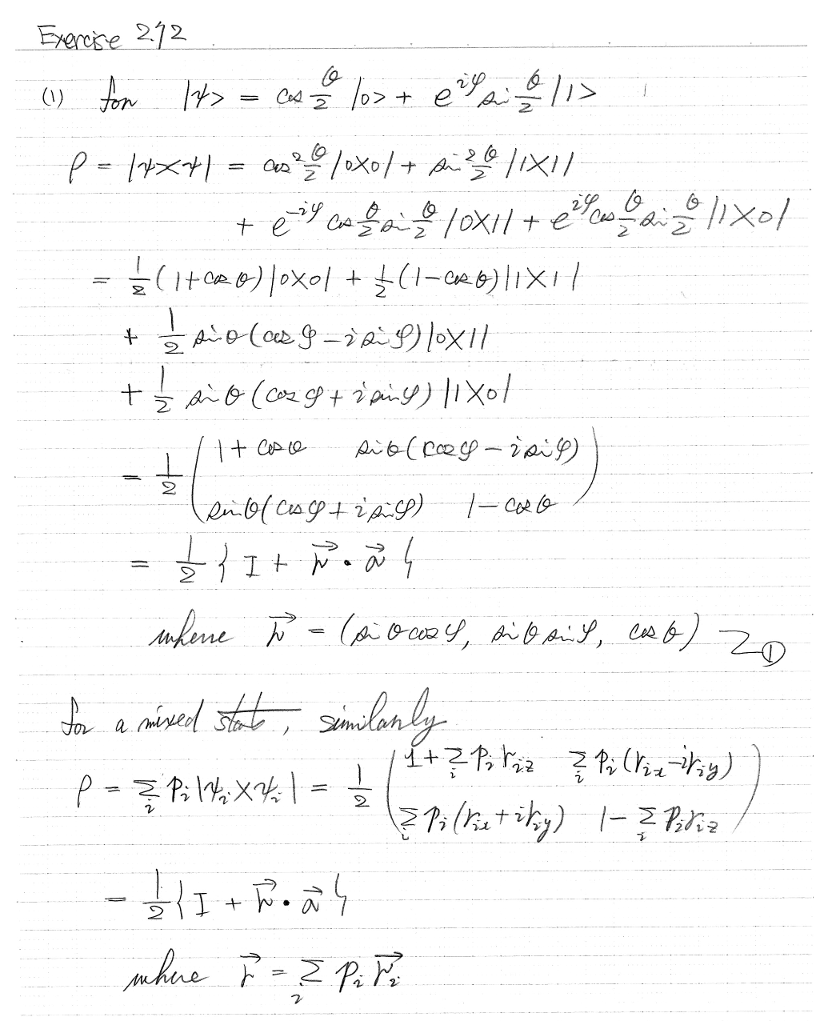 Exercise 2.72
(1) for |ψ> = cos θ/2 |0> + e^{iφ} sin θ/2 |1>
ρ = |ψ><ψ| = cos² θ/2 |0><0| + sin² θ/2 |1><1|
+ e^{-iφ} cos θ/2 sin θ/2 |0><1| + e^{iφ} cos θ/2 sin θ/2 |1><0|
= 1/2 (1+cosθ)|0><0| + 1/2 (1-cosθ)|1><1|
+ 1/2 sinθ(cosφ - i sinφ)|0><1|
+ 1/2 sinθ(cosφ + i sinφ)|1><0|
= 1/2 ( 1+cosθ sinθ(cosφ - i sinφ)
sinθ(cosφ + i sinφ) 1-cosθ )
= 1/2 { I + r⃗ · σ⃗ }
where r⃗ = (sinθcosφ, sinθsinφ, cosθ) ①
for a mixed state, similarly
ρ = Σ_i p_i |ψ_i><ψ_i| = 1/2 ( 1+Σ_i p_i r_{iz} Σ_i p_i (r_{ix} - i r_{iy})
Σ_i p_i (r_{ix} + i r_{iy}) 1 - Σ_i p_i r_{iz} )
= 1/2 { I + r⃗ · σ⃗ }
where r⃗ = Σ_i p_i r⃗_i